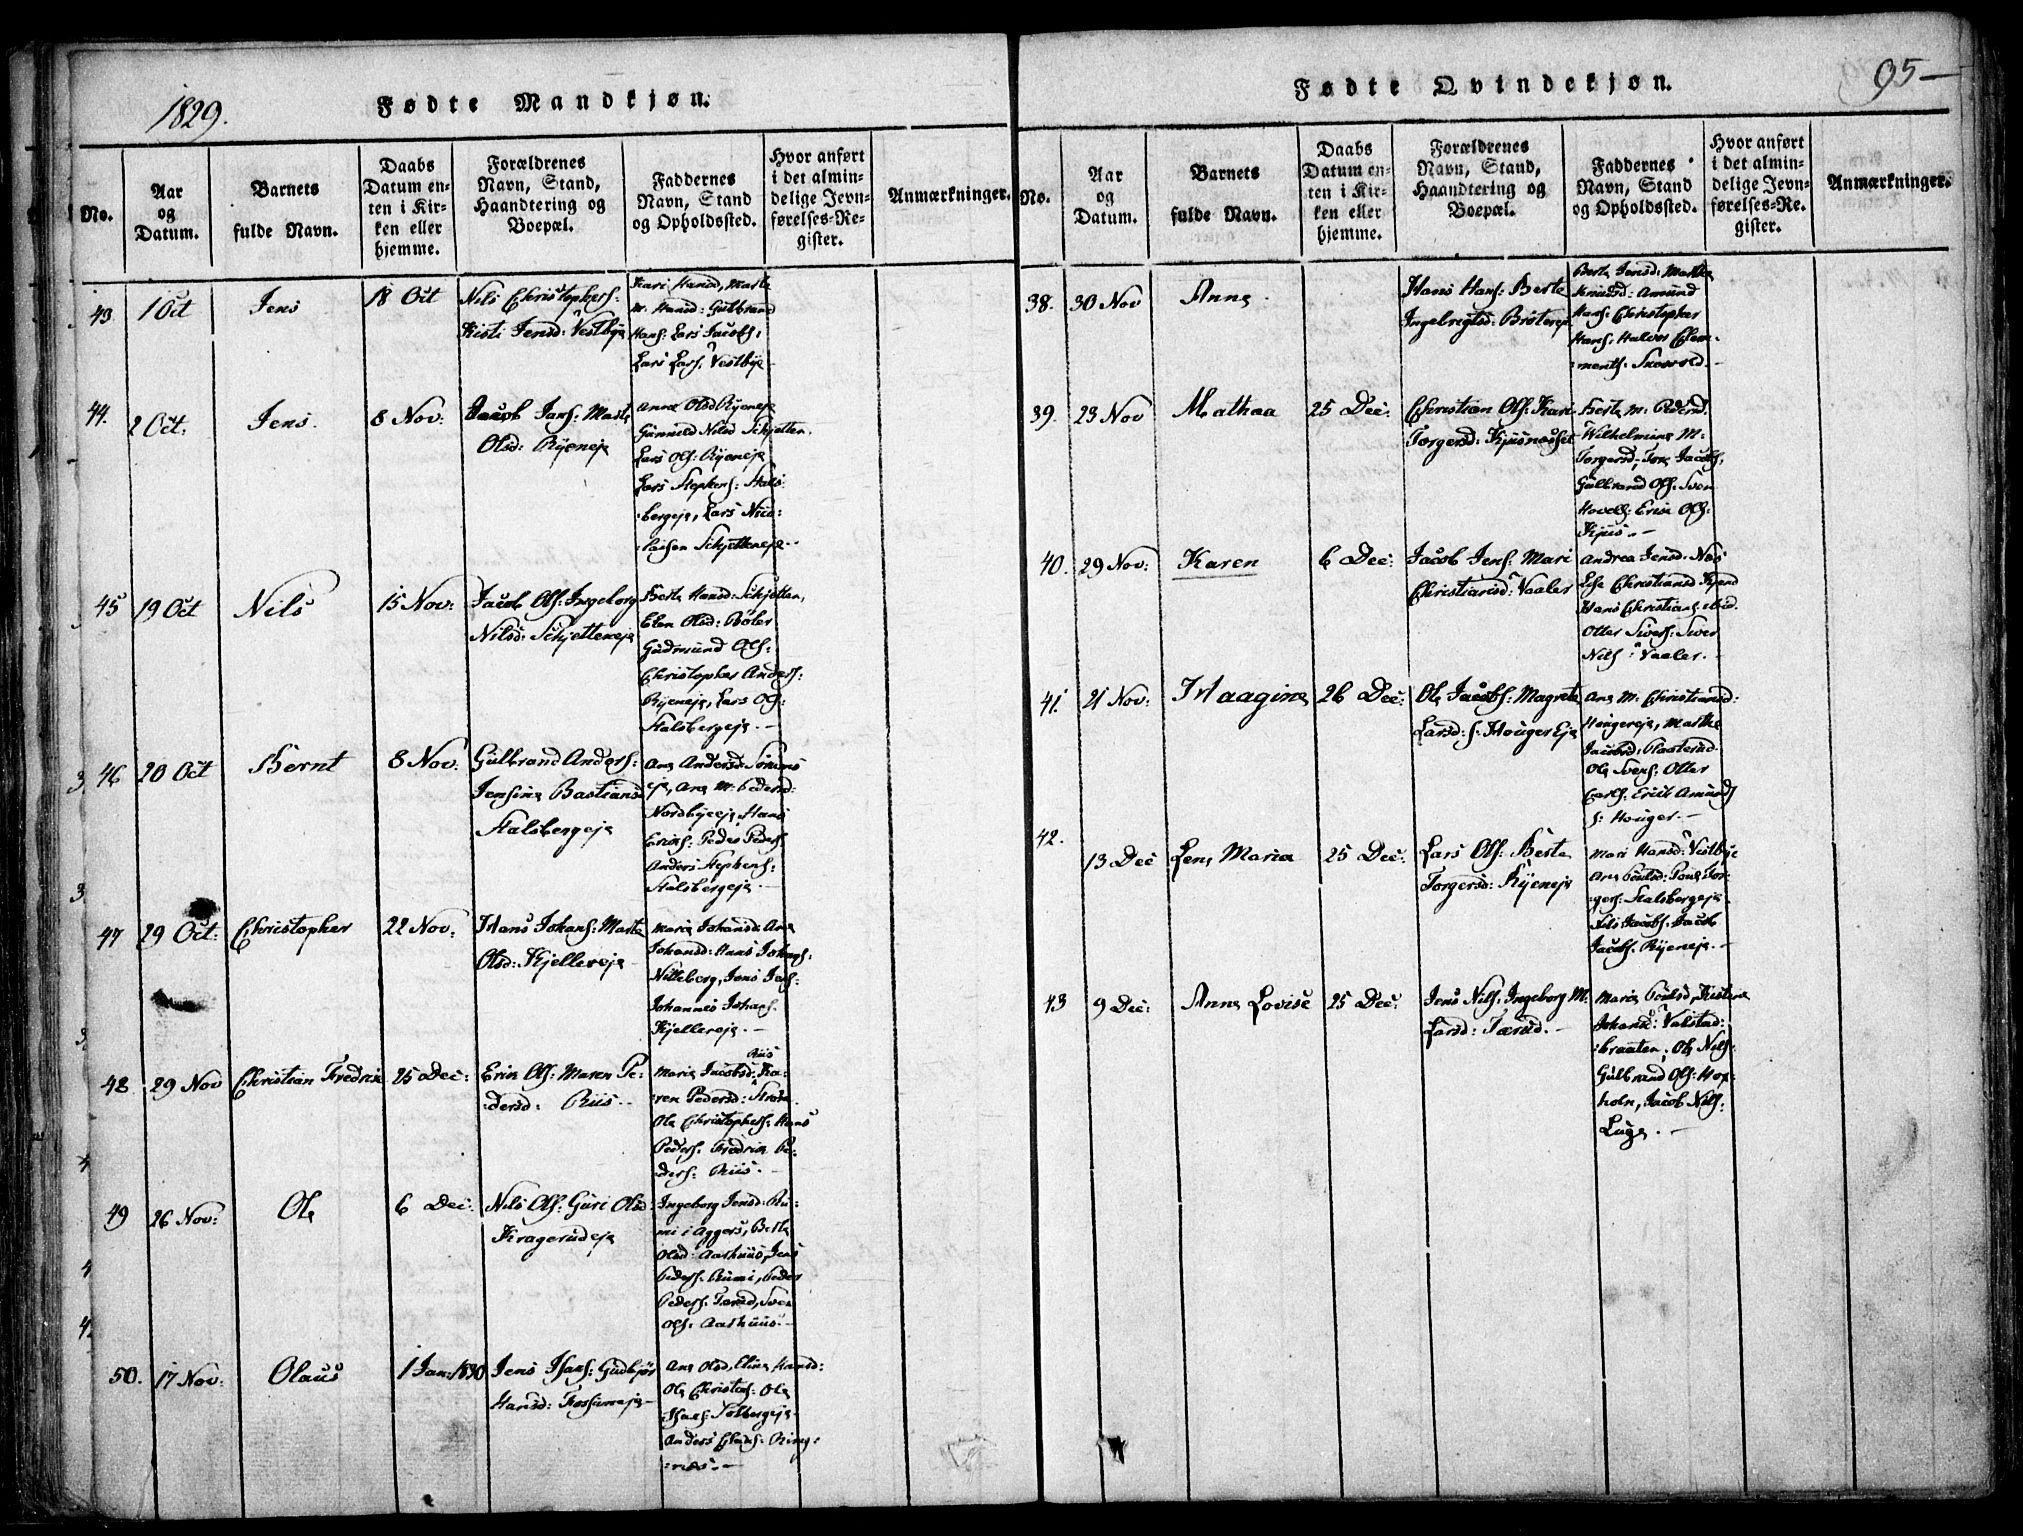 1829.
Fødte Mandkjøn.
No.
Aar
og
Datum.
Barnets
fulde Navn.
Daabs
Datum en-
ten i Kir-
ken eller
hjemme.
Forældrenes
Navn, Stand,
Haandtering og
Boepæl.
Faddernes
Navn, Stand
og Opholdssted.
Hvor anført
i det almin-
delige Jevn-
førelses-Re-
gister.
Anmærkninger.
43
1 Oct
Jens
18 Oct
Nils Christophers:
Kisti Jensd: Vestbye
Kari Hansd, Marte
M. Hansd: Gulbrand
Hans: Lars Jacobs:
Lars Lars: Vestbye
44.
2 Oct.
Jens.
8 Nov:
Jacob Jans: Marte
Olsd: Ryeneje
Anne Olsd Ryeneje
Gunnild Nilsd Schjetten.
Lars Ols: Ryeneje
Lars Stephens: Stals-
bergeje, Lars Nico-
laisen Schjetteneje.
45
19 Oct
Nils
15 Nov:
Jacob Ols: Ingeborg
Nilsd: Schjetteneje
Berte Hansd: Schjetten,
Elen Olsd: Bøler
Gudmund Ols:
Christopher Anders:
Ryeneje, Lars Ols:
Stalsbergeje.
46
20 Oct
Bernt
8 Nov:
Gulbrand Anders:
Jensine Bastiansd
Stalsbergeje
Ane Andersd:
eje, Ane M: Pedersd:
Nordbyeeje, Hans
Erichs: Peder Peders:
Anders Stephens:
Stalsbergeje.
47
29 Oct:
Christopher
22 Nov:
Hans Johans: Marte
Olsd: Kjellereje
Marie Johansd: Ane
Johansd: Hans Johans:
Nitteberg, Jens Jens:
Johannes Johans.
Kjellereje.
48
29 Nov
Christian Fredrik
25 Dec:
Erik Ols: Maren Pe-
dersd: Riis.
Marie Jacobsd: Riis Ka-
ren Pedersd:
Ole Christophers: Hans
Peders. Fredrik Pe-
ders: Riis.
49
26 Nov:
Ole
6 Dec:
Nils Ols: Guri Olsd:
Kragerudeje
Ingeborg Jensd: Ru-
mi i Aggers, Berte
Olsd: Aarhuus, Jens
Peders: Rumi, Peder
Peders. Tærud, Sven
Ols: Aarhuus.
50.
17 Nov:
Olaus
1 Jan: 1830
Jens Isaks: Gudbjør
Hansd: Fossumeje
Ane Olsd, Eline Hansd:
Ole Christens: Ole
Isaks: Solbergeje
Anders Claus: Ring-
næs.
95
Fødte Qvindekjøn.
No.
Aar
og
Datum.
Barnets
fulde Navn.
Daabs
Datum en-
ten i Kir-
ken eller
hjemme.
Forældrenes
Navn, Stand,
Haandtering og
Boepæl.
Faddernes
Navn, Stand
og Opholdssted.
Hvor anført
i det almin-
delige Jevn-
førelses-Re-
gister.
Anmærkninger.
38.
30 Nov
Anne
Hans Hans: Berte
Ingebrigtsd: Bråteeje
Berte Jensd: Marthe
Knudsd: Amund
Hans: Christopher
Hans: Halvor Clem-
ments:
39.
23 Nov
Mathea
25 Dec:
Christian Ols: Kari
Torgersd: Kjusnæsset
Berte M: Pedersd.
Wilhelmine M:
Torgersd: Tore Jacobs:
Gulbrand Ols: Sven
Hovels: Erik Ols:
Kjuus.
40.
29 Nov:
Karen
6 Dec:
Jacob Jens: Mari
Christiansd: Vaaler
Andrea Jensd: Næs
Else Christiansd Kjend
Hans Christians: ibid.
Otter Sivers: Siver
Nils: Vaaler.
41.
21 Nov:
Maagine
26 Dec:
Ole Jacobs: Magrete
Larsd: S: Houger Eje
Ane M: Christiansd:
Hougereje, Marthe
Jacobsd:
Ole Svens: Otter
Carls: Erik Amunds
S: Houger.
42.
13 Dec
Lene Maria
25 Dec:
Lars Ols: Berte
Torgersd: Ryeneje
Mari Hansd: Vestbye
Ane Poulsd: Poul Tor-
gers: Stalsbergeje.
Nils Jacobs: Jacob
Jacobs. Ryeneje.
43
9 Dec:
Anne Lovise
25 Dec:
Jens Nils: Ingeborg M:
Larsd: Tærud.
Marie Poulsd, Kistine
Johansd: Valstad-
braaten, Ole Nils:
Gulbrand Ols: Hox-
holn, Jacob Nils:
Luge.